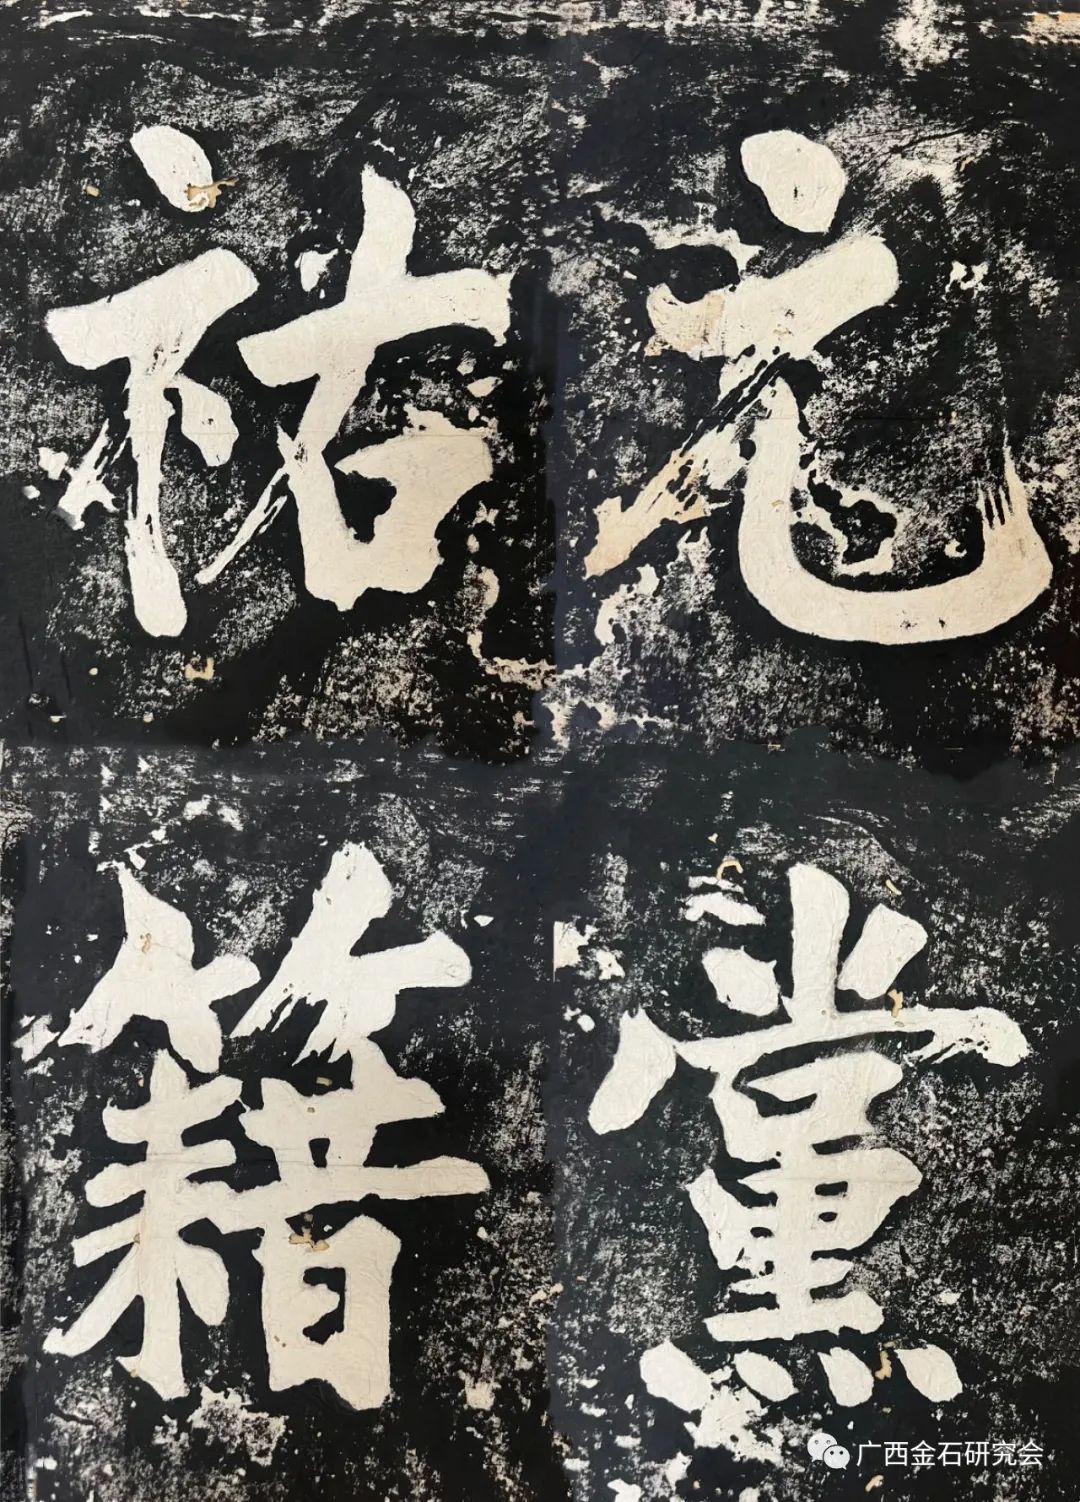 元祐
黨籍
广西金石研究会